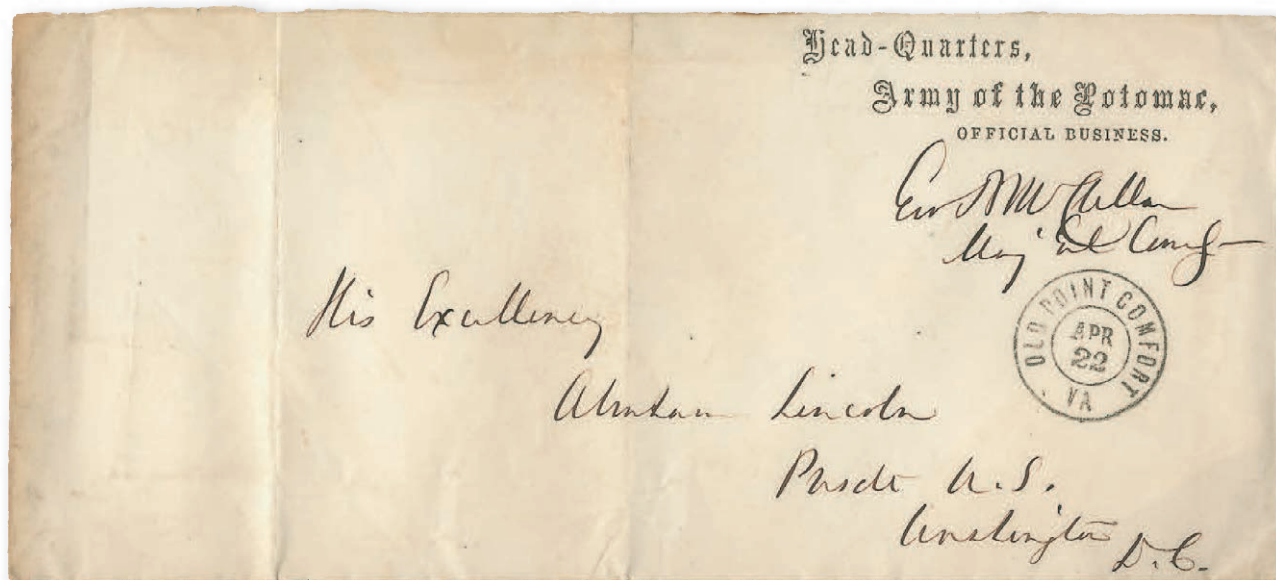 Head-Quarters,
Army of the Potomac,
OFFICIAL BUSINESS.
Geo B McClellan
Maj Genl Comg
OLD POINT COMFORT
APR
22
VA
His Excellency
Abraham Lincoln
Presdt U.S.
Washington
D.C.